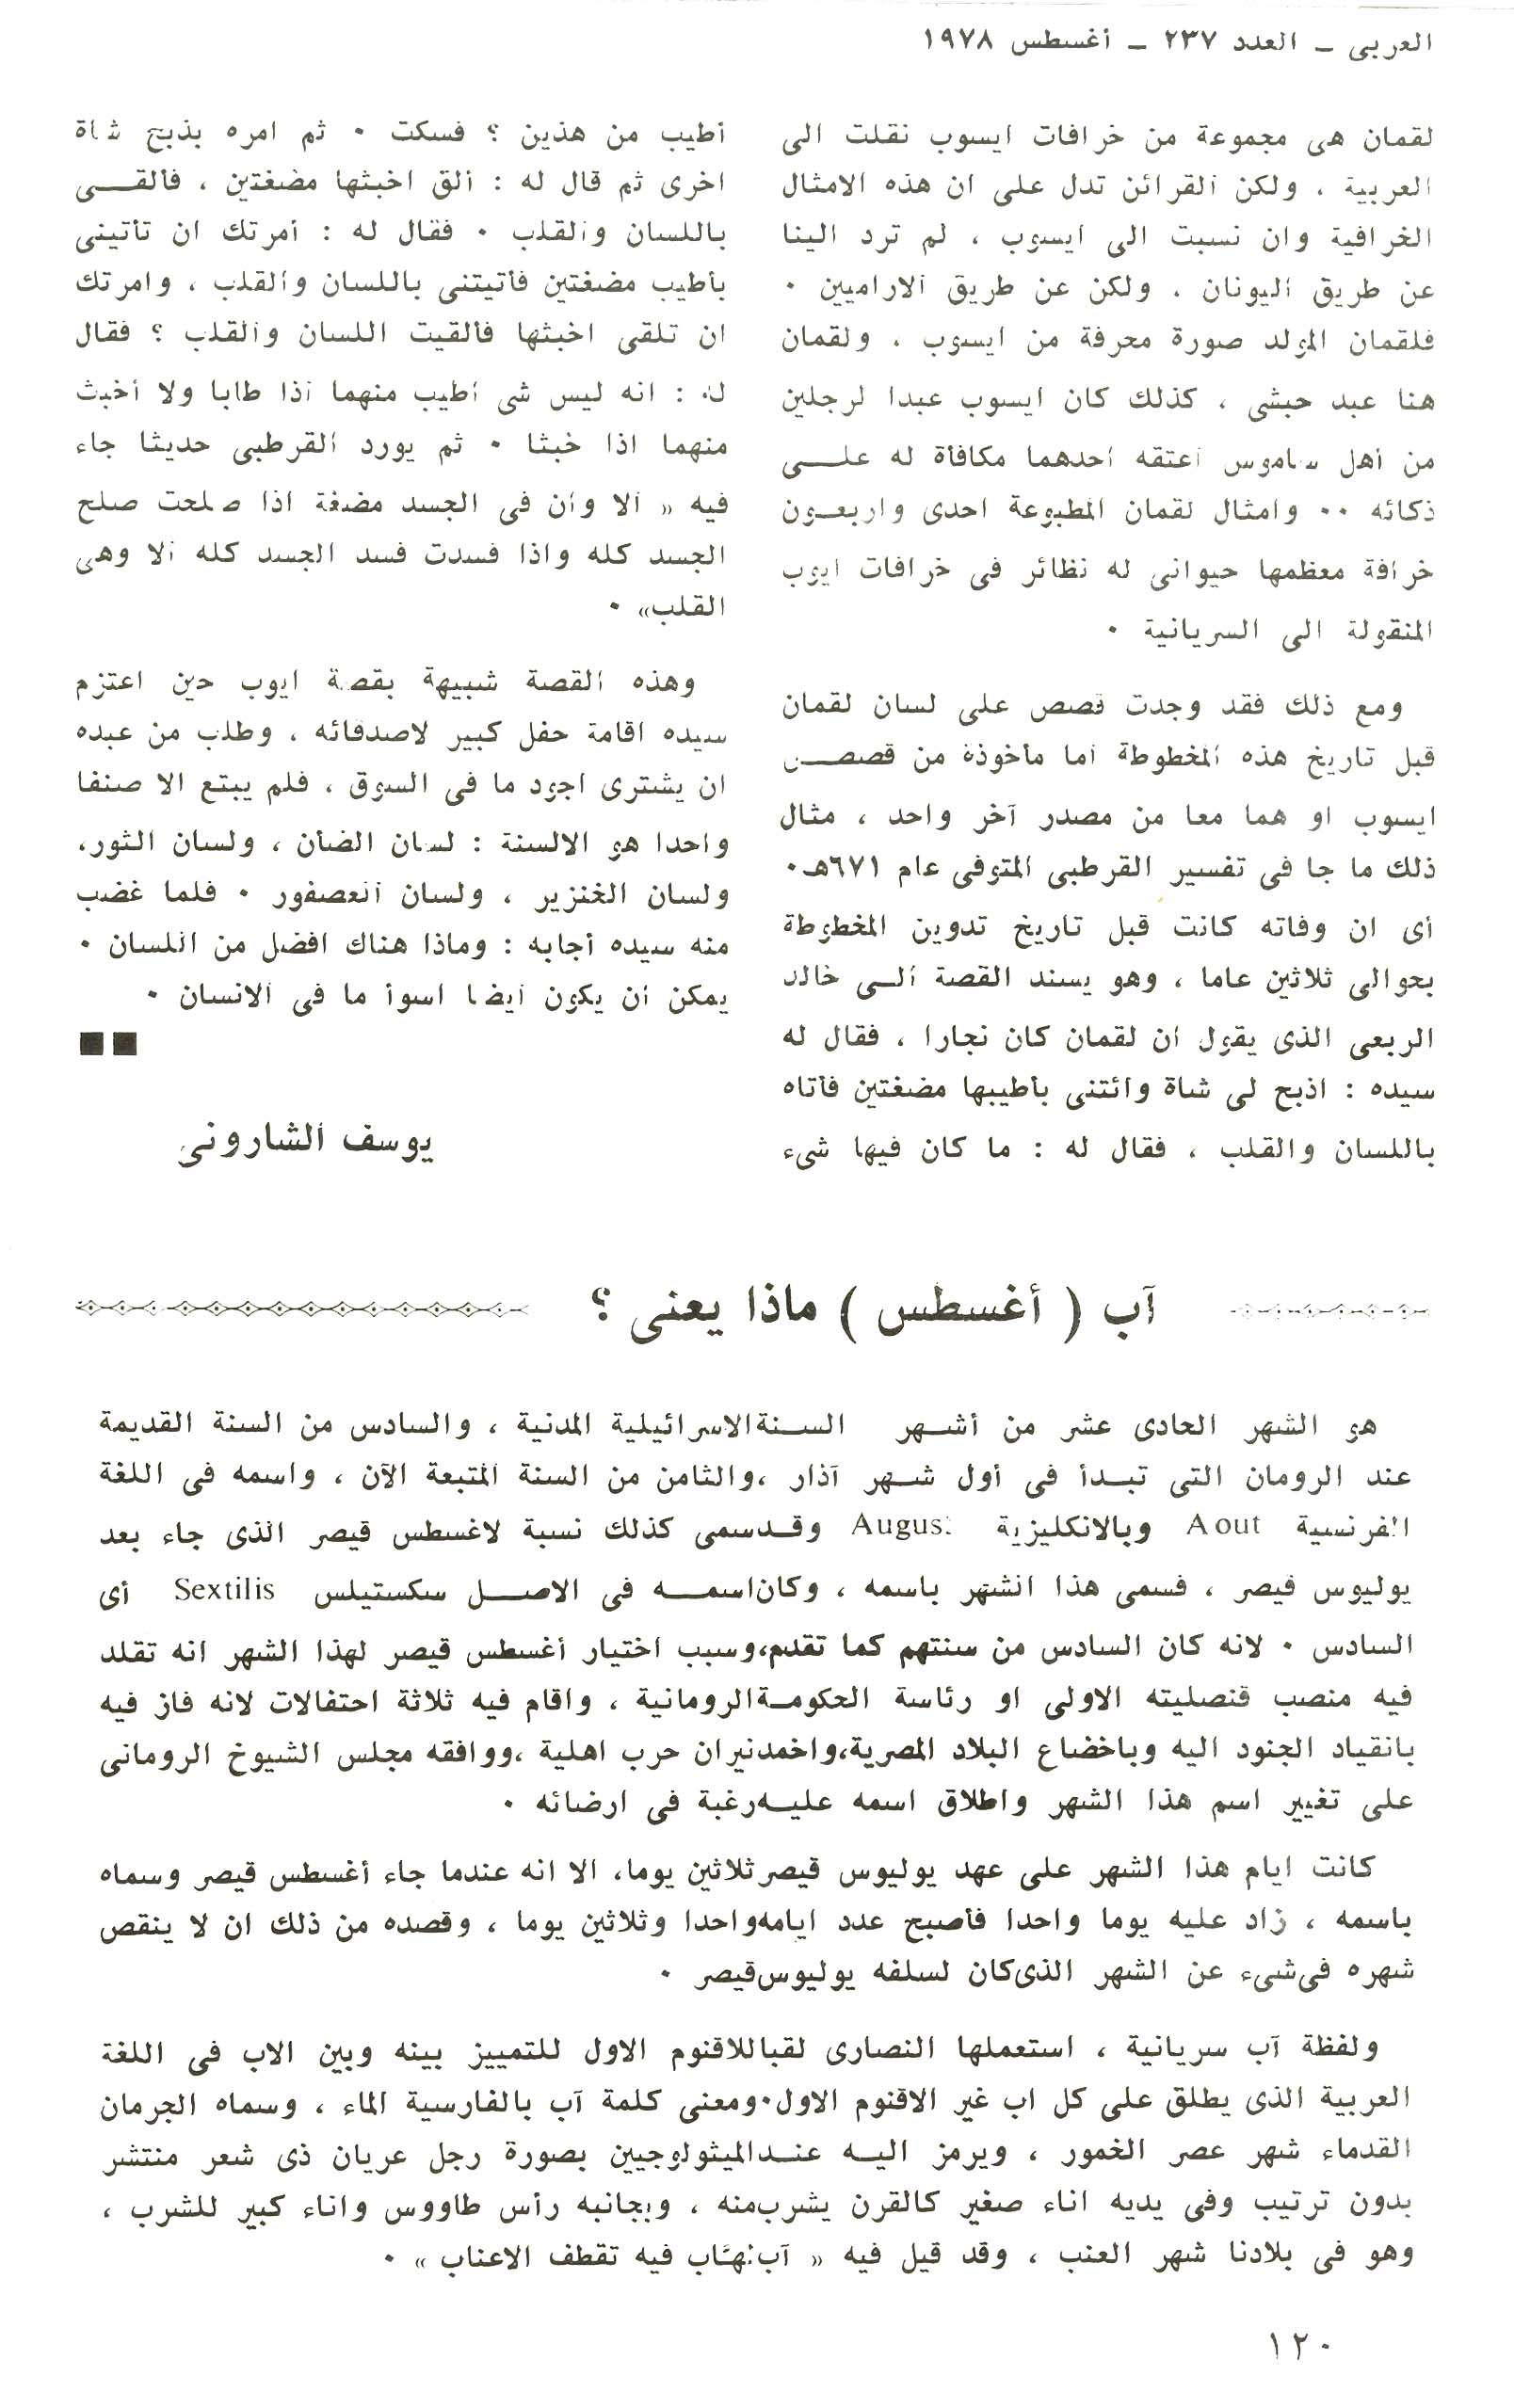 العربى ـ العدد ٢٣٧ ـ أغسطس ١٩٧٨
لقمان هى مجموعة من خرافات ايسوب نقلت الى
العربية ، ولكن القرائن تدل على ان هذه الامثال
الخرافية وان نسبت الى ايسوب ، لم ترد الينا
عن طريق اليونان ، ولكن عن طريق الاراميين ٠
فلقمان المولد صورة محرفة من ايسوب ، ولقمان
هنا عبد حبشى ، كذلك كان ايسوب عبدا لرجلين
من أهل ساموس أعتقه أحدهما مكافأة له علـــى
ذكائه ٠٠ وامثال لقمان المطبوعة احدى واربعـون
خرافة معظمها حيوانى له نظائر فى خرافات ايوب
المنقولة الى السريانية ٠
ومع ذلك فقد وجدت قصص على لسان لقمان
قبل تاريخ هذه المخطوطة أما مأخوذة من قصصـــ
ايسوب او هما معا من مصدر آخر واحد ، مثال
ذلك ما جا فى تفسير القرطبى المتوفى عام ٦٧١هـ٠
أى ان وفاته كانت قبل تاريخ تدوين المخطوطة
بحوالى ثلاثين عاما ، وهو يسند القصة ألـى خالد
الربعى الذى يقول أن لقمان كان نجارا ، فقال له
سيده : اذبح لى شاة وائتنى بأطيبها مضغتين فأتاه
باللسان والقلب ، فقال له : ما كان فيها شىء
أطيب من هذين ؟ فسكت ٠ ثم امره بذبح شاة
اخرى ثم قال له : ألق اخبثها مضغتين ، فألقـــى
باللسان والقلب ٠ فقال له : أمرتك ان تأتينى
بأطيب مضغتين فأتيتنى باللسان والقلب ، وامرتك
ان تلقى اخبثها فألقيت اللسان والقلب ؟ فقال
له : انه ليس شى أطيب منهما أذا طابا ولا أخبث
منهما اذا خبثا ٠ ثم يورد القرطبى حديثا جاء
فيه « ألا وأن فى الجسد مضغة اذا صلحت صلح
الجسد كله واذا فسدت فسد الجسد كله ألا وهى
القلب» ٠
وهذه القصة شبيهة بقصة ايوب حين اعتزم
سيده اقامة حفل كبير لاصدقائه ، وطلب من عبده
ان يشترى اجود ما فى السوق ، فلم يبتع الا صنفا
واحدا هو الالسنة : لسان الضأن ، ولسان الثور،
ولسان الخنزير ، ولسان العصفور ٠ فلما غضب
منه سيده أجابه : وماذا هناك افضل من اللسان ٠
يمكن أن يكون أيضا اسوأ ما فى الانسان ٠
يوسف الشارونى
آب ( أغسطس ) ماذا يعنى ؟
هو الشهر الحادى عشر من أشـهر السـنةالاسرائيلية المدنية ، والسادس من السنة القديمة
عند الرومان التى تبـدأ فى أول شـهر آذار ،والثامن من السنة المتبعة الآن ، واسمه فى اللغة
الفرنسية Aout وبالانكليزية August وقـدسمى كذلك نسبة لاغسطس قيصر الذى جاء بعد
يوليوس قيصر ، فسمى هذا الشهر باسمه ، وكان اسمـــه فى الاصـــل سكستيلس Sextilis أى
السادس ٠ لانه كان السادس من سنتهم كما تقدم،وسبب اختيار أغسطس قيصر لهذا الشهر انه تقلد
فيه منصب قنصليته الاولى او رئاسة الحكومـةالرومانية ، واقام فيه ثلاثة احتفالات لانه فاز فيه
بانقياد الجنود اليه وباخضاع البلاد المصرية،واخمدنيران حرب اهلية ،ووافقه مجلس الشيوخ الرومانى
على تغيير اسم هذا الشهر واطلاق اسمه عليـه رغبة فى ارضائه ٠
كانت ايام هذا الشهر على عهد يوليوس قيصر ثلاثين يوما، الا انه عندما جاء أغسطس قيصر وسماه
باسمه ، زاد عليه يوما واحدا فأصبح عدد ايامه واحدا وثلاثين يوما ، وقصده من ذلك ان لا ينقص
شهره فى شىء عن الشهر الذى كان لسلفه يوليوس قيصر ٠
ولفظة آب سريانية ، استعملها النصارى لقباللاقنوم الاول للتمييز بينه وبين الاب فى اللغة
العربية الذى يطلق على كل اب غير الاقنوم الاول٠ومعنى كلمة آب بالفارسية الماء ، وسماه الجرمان
القدماء شهر عصر الخمور ، ويرمز اليـه عنـدالميثولوجيين بصورة رجل عريان ذى شعر منتشر
بدون ترتيب وفى يديه اناء صغير كالقرن يشرب منه ، وبجانبه رأس طاووس واناء كبير للشرب ،
وهو فى بلادنا شهر العنب ، وقد قيل فيه « آب فيه تقطف الاعناب » ٠
١٢٠